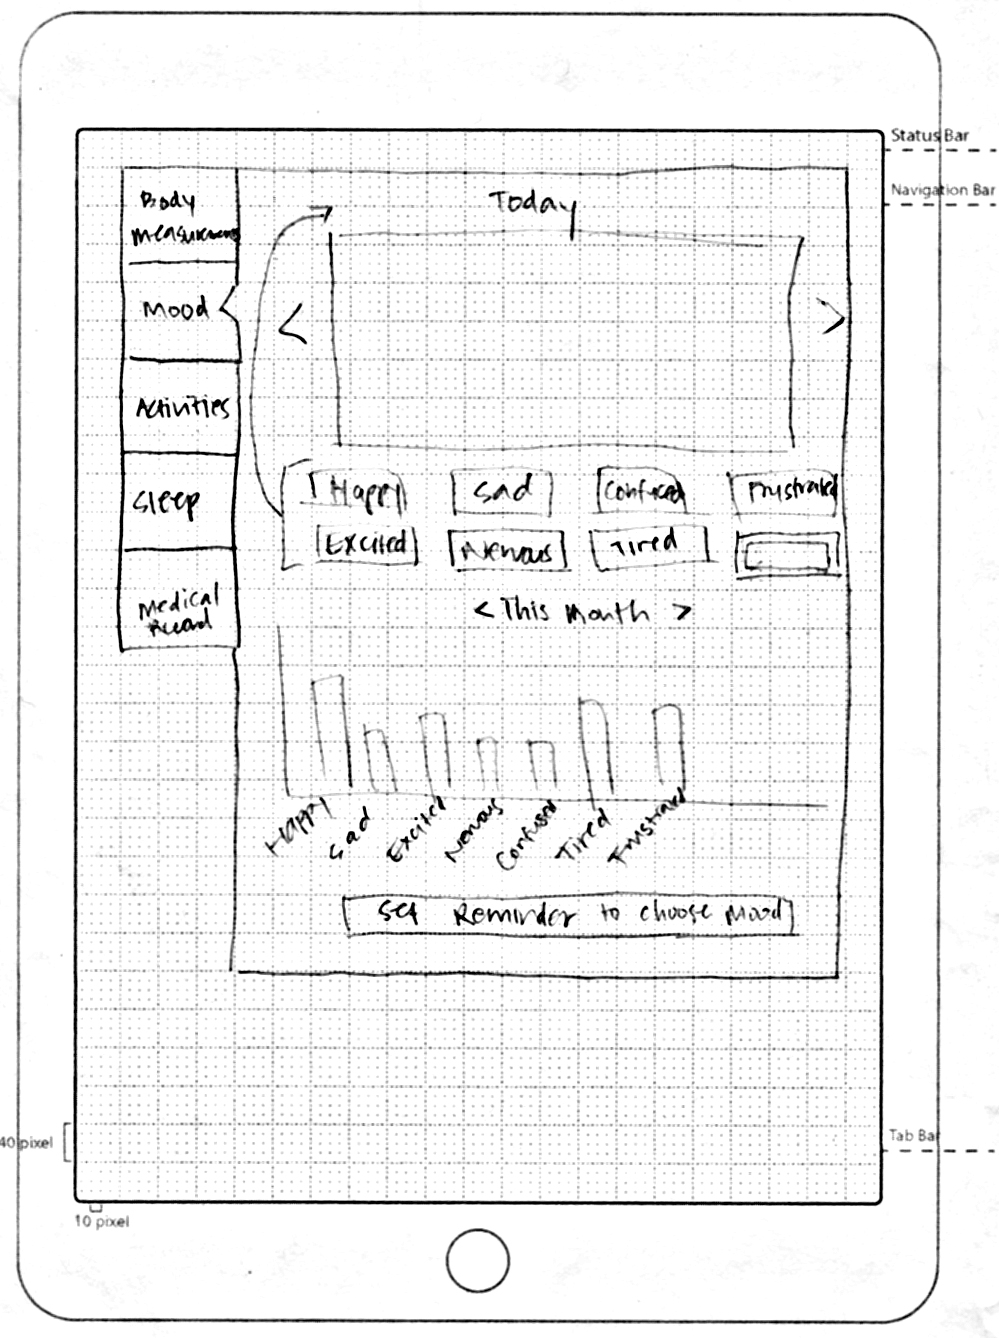 Status Bar
Navigation Bar
Body
measurement
Mood
Activities
Sleep
Medical
Record
Today
<
>
Happy
Sad
Confused
Frustrated
Excited
Nervous
Tired
< This Month >
Happy
Sad
Excited
Nervous
Confused
Tired
Frustrated
Set Reminder to choose Mood
40 pixel
Tab Bar
10 pixel